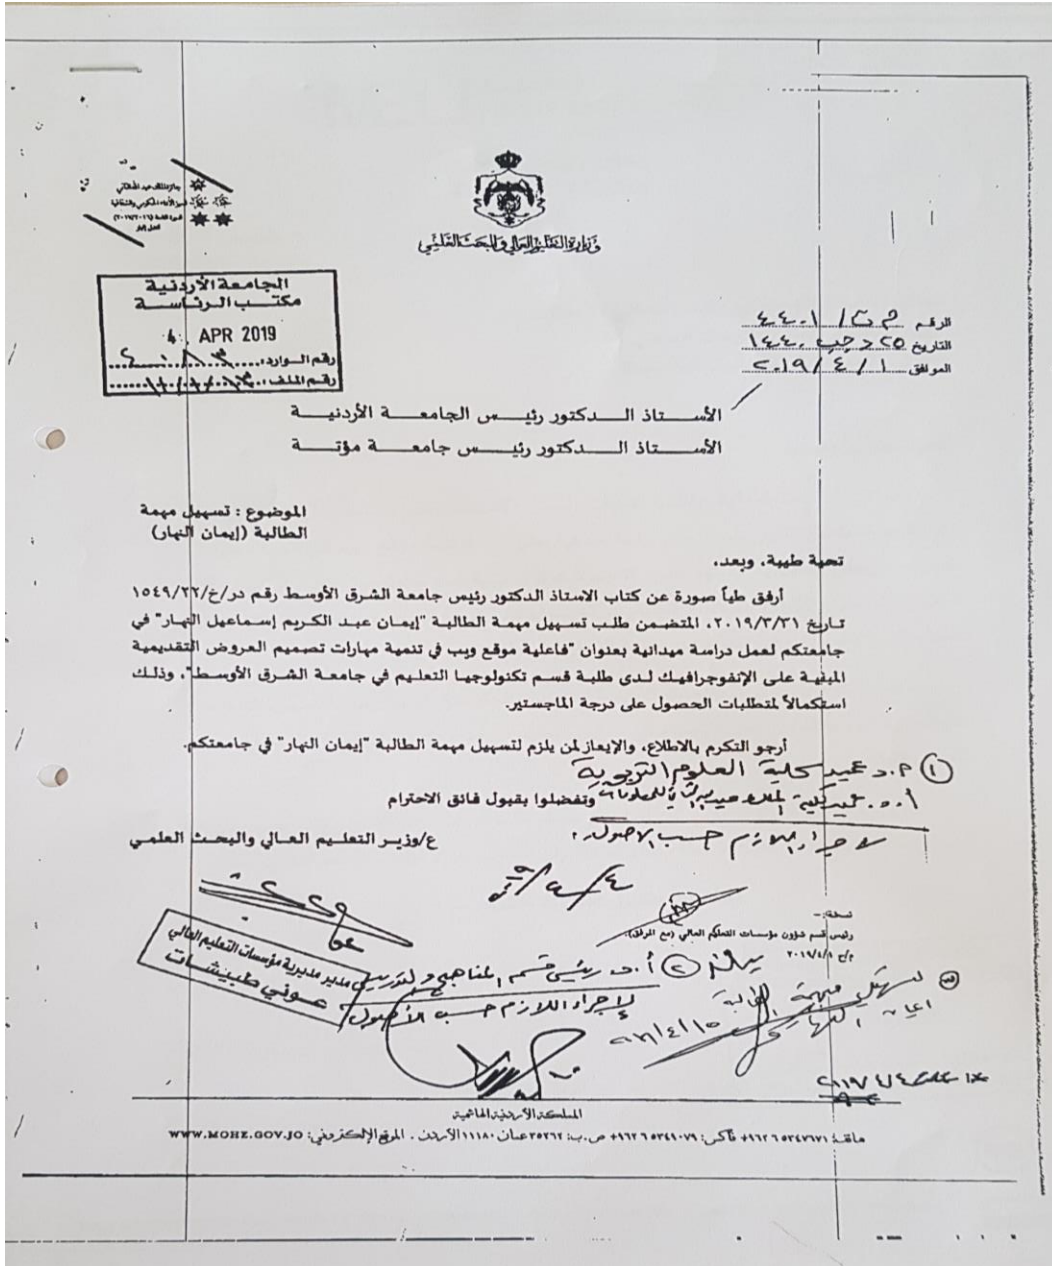 وزارة التعليم العالي والبحث العلمي
الجامعة الأردنية
مكتب الرئاسة
4 . APR 2019
رقم الوارد:
رقم الملف:
الرقم م ت/ ٤٤٠١
التاريخ ٢٥ رجب ١٤٤٠
الموافق ٢٠١٩/٤/١
الأستاذ الدكتور رئيس الجامعة الأردنية
الأستاذ الدكتور رئيس جامعة مؤتة
الموضوع : تسهيل مهمة
الطالبة (إيمان النهار)
تحية طيبة، وبعد،
أرفق طياً صورة عن كتاب الاستاذ الدكتور رئيس جامعة الشرق الأوسط رقم در/خ/١٥٤٩/٢٢
تاريخ ٢٠١٩/٣/٣١، المتضمن طلب تسهيل مهمة الطالبة "إيمان عبد الكريم إسماعيل النهار" في
جامعتكم لعمل دراسة ميدانية بعنوان "فاعلية موقع ويب في تنمية مهارات تصميم العروض التقديمية
المبنية على الإنفوجرافيك لدى طلبة قسم تكنولوجيا التعليم في جامعة الشرق الأوسط"، وذلك
استكمالاً لمتطلبات الحصول على درجة الماجستير.
أرجو التكرم بالاطلاع، والإيعاز لمن يلزم لتسهيل مهمة الطالبة "إيمان النهار" في جامعتكم.
① م.د عميد كلية العلوم التربوية
أ.د. عميد كلية الملك عبدالله الثاني
وتفضلوا بقبول فائق الاحترام
لاجراء اللازم حسب الاصول
ع/وزير التعليم العالي والبحث العلمي
٤/٤
مدير مديرية مؤسسات التعليم العالي
عوني طبيشات
نسخة:-
رئيس قسم شؤون مؤسسات التعليم العالي (مع المرفق).
② أ.د. رئيس قسم المناهج والتدريس
لإجراء اللازم حسب الأصول
③ لتسهيل مهمة الطالبة
ايمان النهار
المملكة الأردنية الهاشمية
هاتف: ٩٦٢٦٥٣٤٧٦٧١+ فاكس: ٩٦٢٦٥٣٤٩٠٧٩+ ص.ب: ٣٥٢٦٢ عمان ١١١٨٠ الأردن . الموقع الإلكتروني: WWW.MOHE.GOV.JO